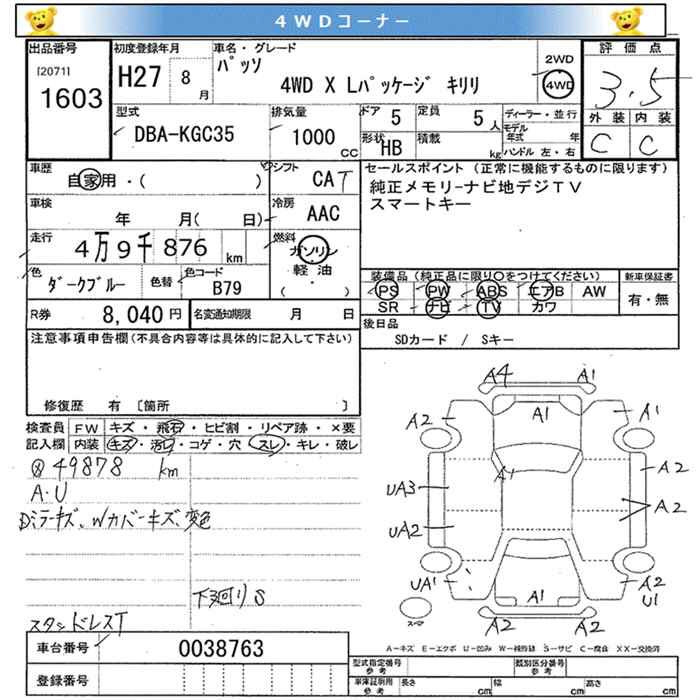 4WDコーナー
出品番号
[2071]
1603
初度登録年月
H27 8月
車名・グレード
パッソ
4WD X Lパッケージ キリリ
2WD
4WD
評価点
3.5
外装 内装
C C
型式
DBA-KGC35
排気量
1000 CC
ドア 5
定員 5人
形状 HB
積載 kg
ディーラー・並行
モデル年式 年
ハンドル 左・右
車歴
自家用・( )
シフト
CAT
車検
年 月( 日)
冷房
AAC
走行
4万9千876 km
燃料
ガソリン
軽油
( )
色
ダークブルー
色替
色コード
B79
R券 8,040円
名変通知期限 月 日
セールスポイント (正常に機能するものに限ります)
純正メモリ-ナビ地デジTV
スマートキー
装備品 (純正品に限り○をつけてください)
PS PW ABS エアB AW
SR ナビ TV カワ
新車保証書
有・無
後日品
SDカード / Sキー
注意事項申告欄(不具合内容等は具体的に記入して下さい)
修復歴 有 [箇所 ]
検査員記入欄
FW キズ・飛石・ヒビ割・リペア跡・×要
内装 キズ・汚レ・コゲ・穴・スレ・キレ・破レ
49878 km
A.U
Dミラーキズ、Wカバーキズ、変色
下廻りS
スタッドレスT
A4 A1
A2 A1 A1
A1
UA3 A2
A2
UA2
UA1 A1 A2
U1
A2 A2
スペア
A-キズ E-エクボ U-凹み W-補修跡 S-サビ C-腐食 XX-交換済
車台番号 0038763
登録番号
型式指定番号 参考
類別区分番号 参考
車庫証明用 参考 長さ cm 幅 cm 高さ cm